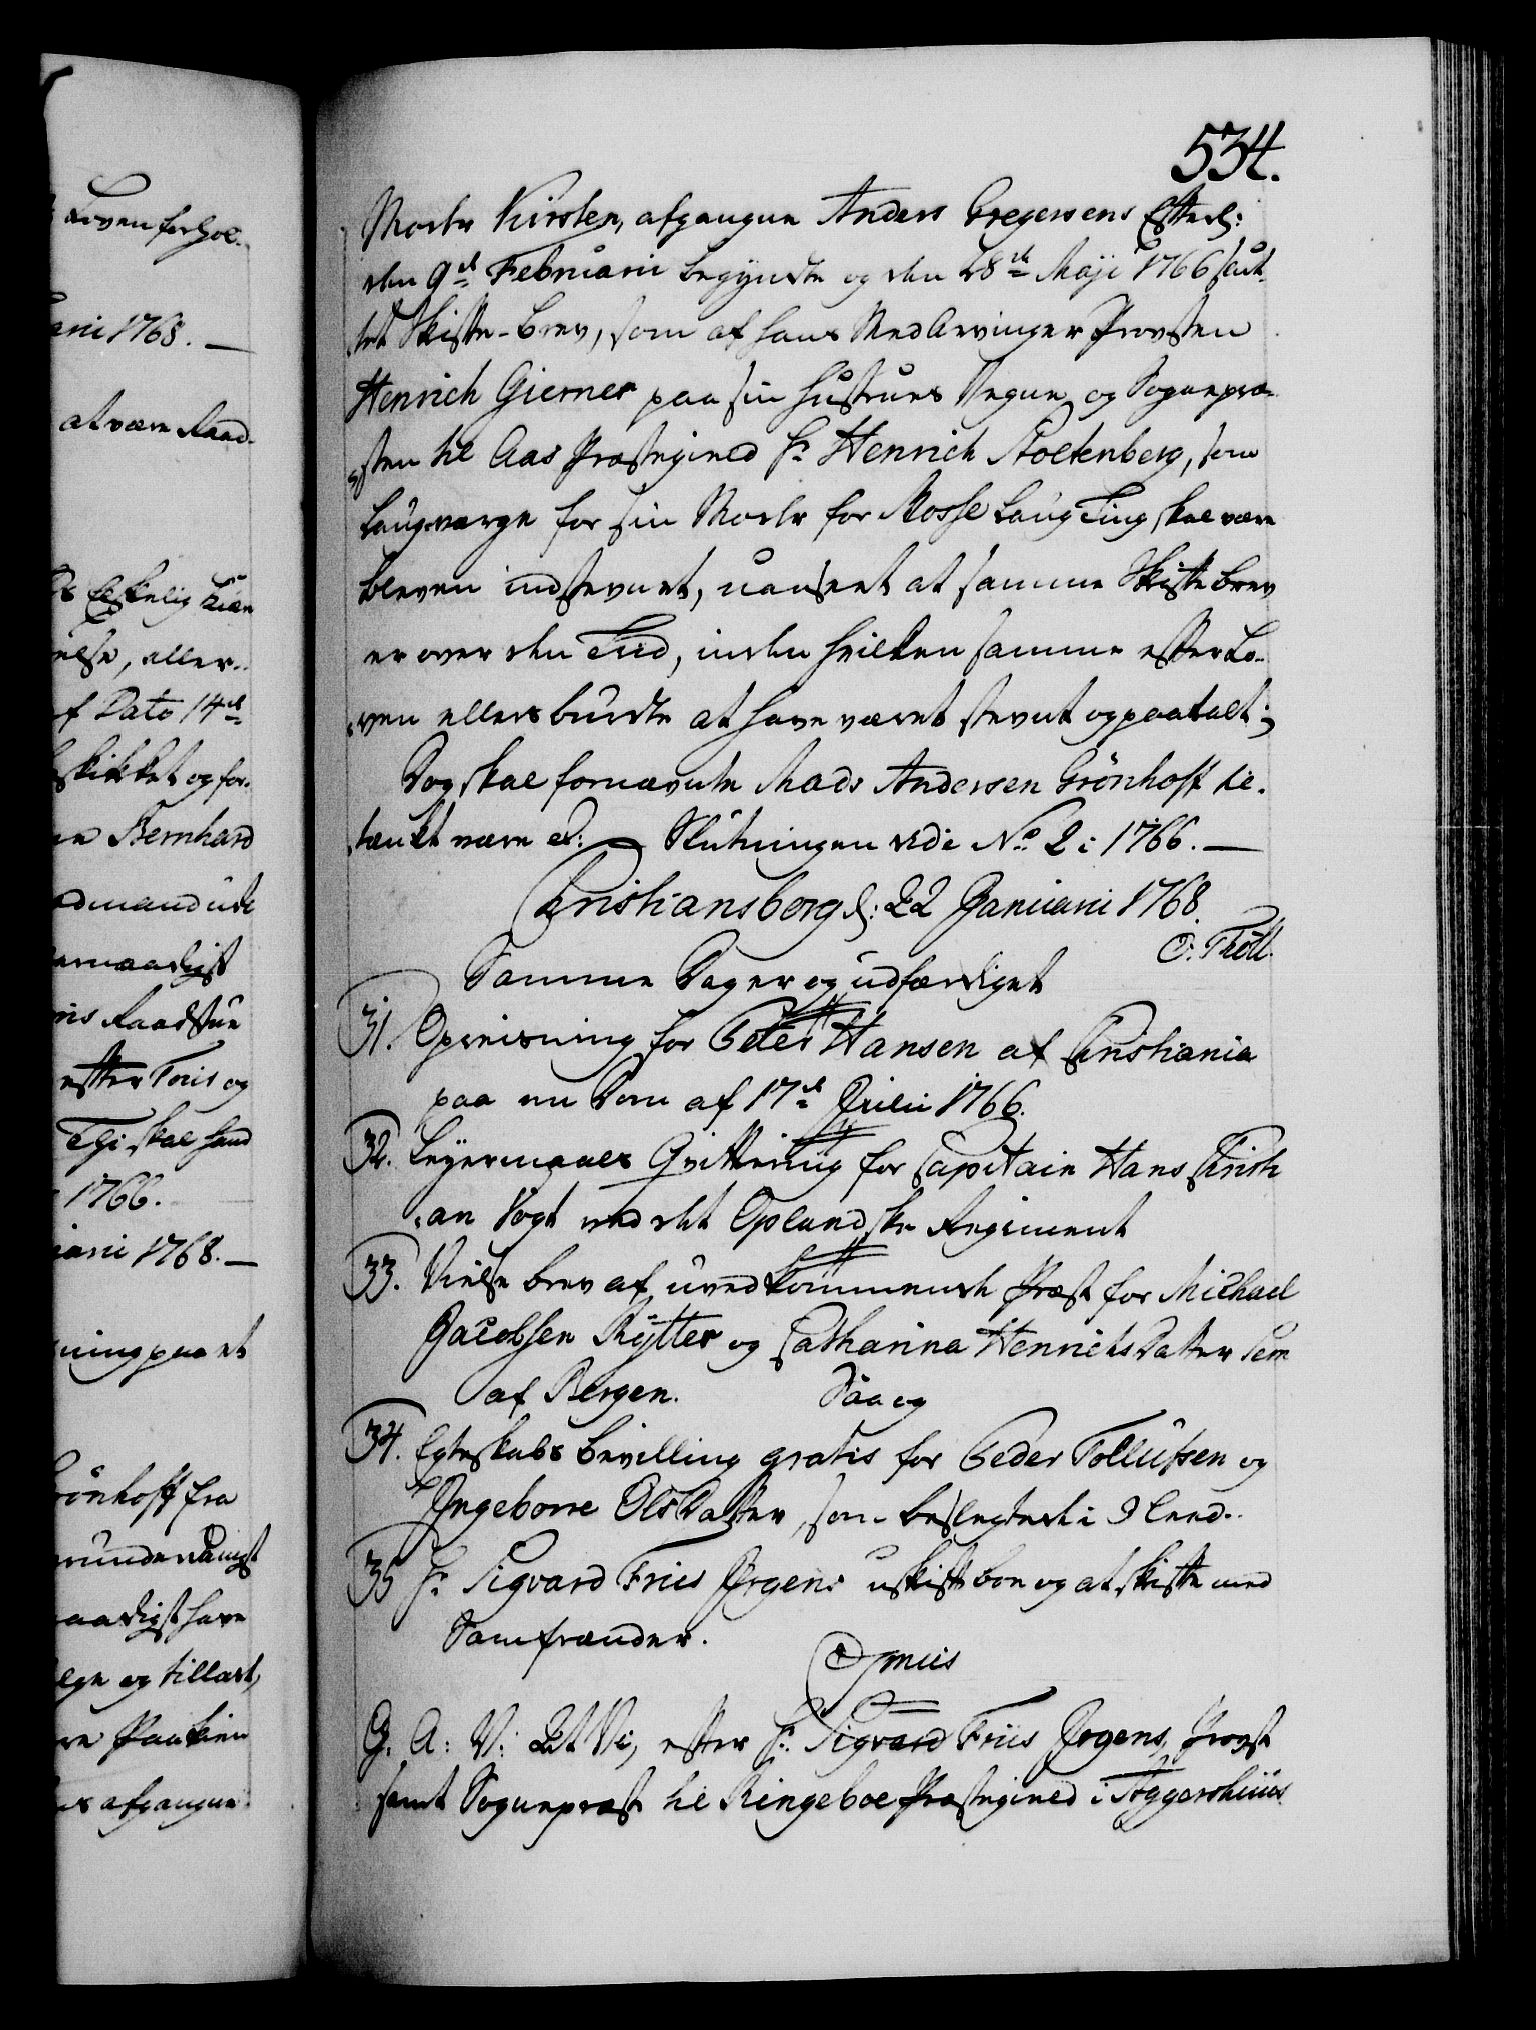 534.
Moder Kirsten, afgangne Anders Gregersens Efterl:
den 9de Februarii begyndte og den 28de Maji 1766 slut-
tet Skifte-Brev, som af hans Med Arvinger Provsten
Henrich Gierner paa sin Hustrues Vegne og Sognepræ-
sten til Aas Præstegield Hr Henrich Stoltenberg, som
Laugværge for sin Moder for Mosse Laug Ting skal være
bleven indstevnet, uanseet at samme Skifte Brev
er over den Tiid, inden hvilken samme efter Lo-
ven ellers burde at have været stevnt og paatalt;
Dog skal fornævnte Mads Andersen Grönhoff be-
tænkt være &: Slutningen vide No 2 i 1766. —
Christiansborg d: 22 Januarii 1768.
O. Thott.
Samme Dag er og udfærdiget
31. Opreisning for Peter Hansen af Christiania
paa en Dom af 17de Julii 1766.
32. Leyermaals Qvittering for Capitain Hans Christi
an Vogt ved det Oplandske Regiment
33. Vielse brev af uvedkommende Præst for Michael
Jacobsen Rÿtter og Catharina Henrichs Datter Sem
af Bergen. Saa og
34. Egteskabs bevilling gratis for Peder Tollufsen og
Ingeborre Ols Datter, som beslegtede i 3 Leed.
35 Hr Sigvard Friis Jrgens uskift boe og at skifte med
Samfrænder.
G. A: V: At Vi, efter Hr. Sigvard Friis Jrgens, Provst
samt Sognepræst til Ringeboe Præstegield i Aggershuus
Loven forhol-
arii 1768. —
at være Raad-
Elskelig Kiær
else, eller
af Dato 14de
skikket og for-
Bernhard
admand ude
ernaadigst
Raadstue
efter Tout og
skal hand
1766.
uarii 1768. —
ning paa et
Grönhoff fra
erunderdanigst
naadigst have
og tilladt,
afgangne